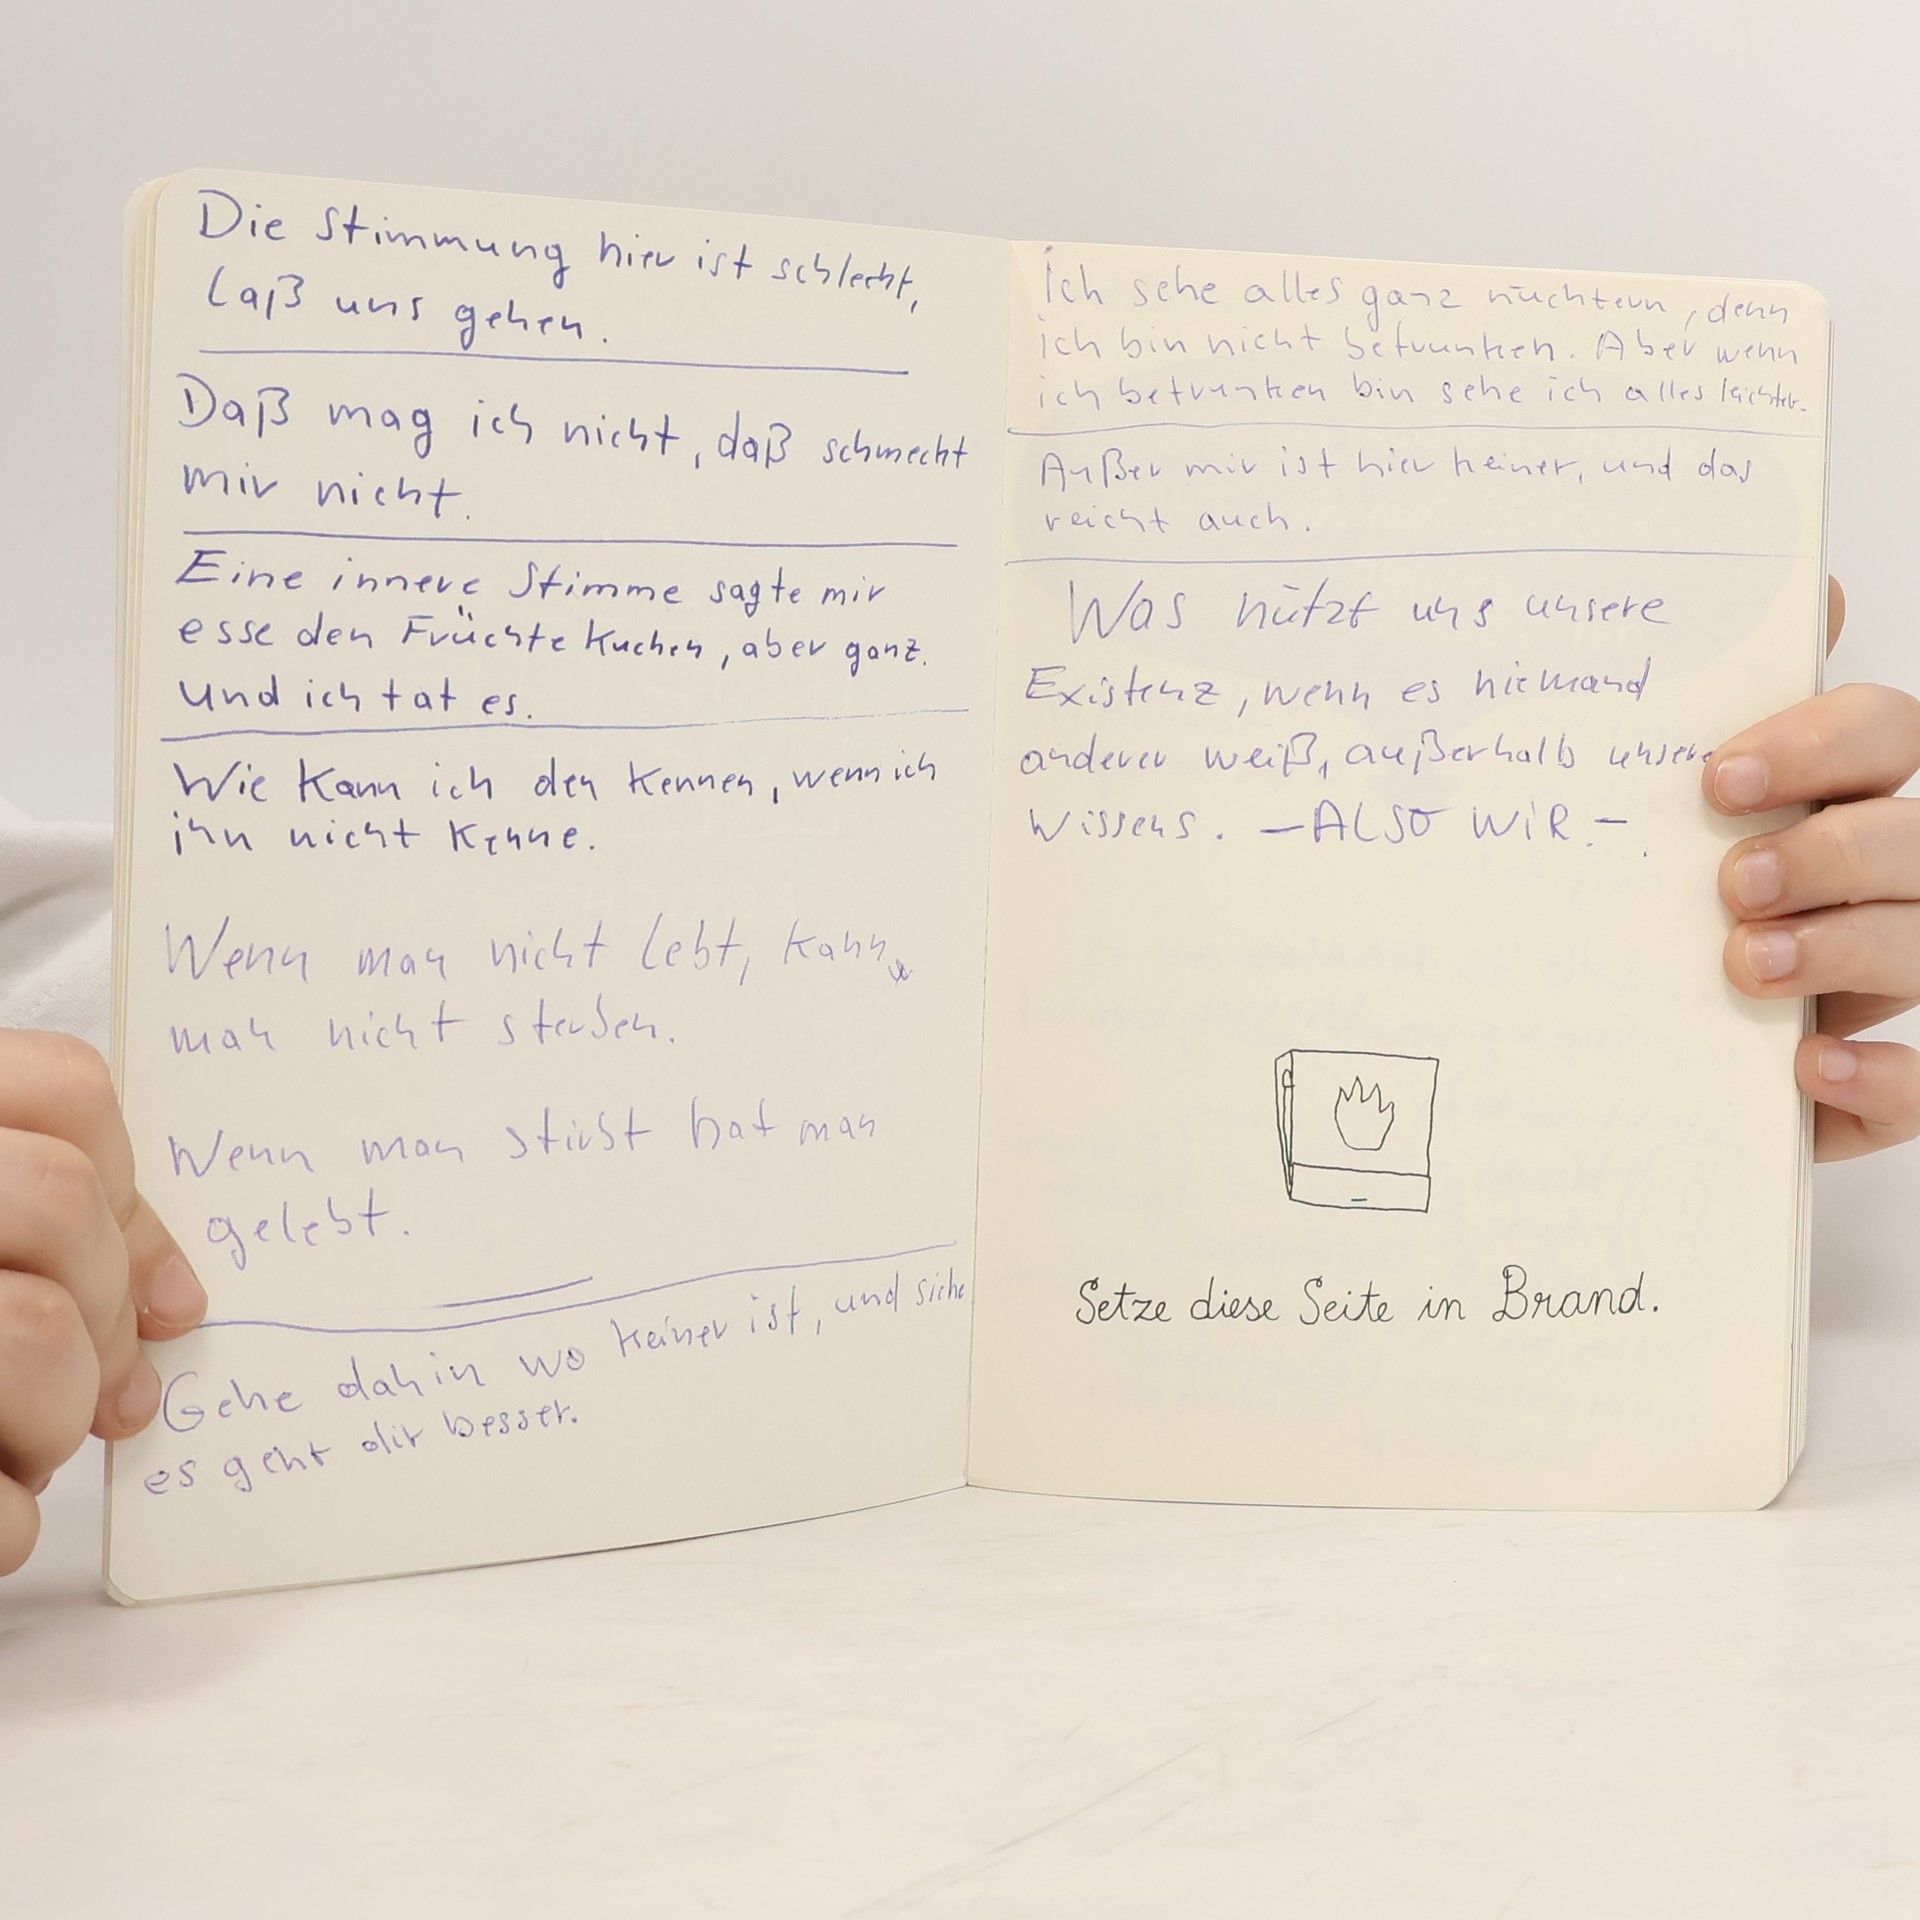 Die Stimmung hier ist schlecht,
laß uns gehen.
Daß mag ich nicht, daß schmeckt
mir nicht.
Eine innere Stimme sagte mir
esse den Früchte Kuchen, aber ganz.
Und ich tat es.
Wie kann ich den kennen, wenn ich
ihn nicht kenne.
Wenn man nicht lebt, kann
man nicht sterben.
Wenn man stirbt hat man
gelebt.
Gehe dahin wo keiner ist, und siehe
es geht dir besser.
Ich sehe alles ganz nüchtern, denn
ich bin nicht betrunken. Aber wenn
ich betrunken bin sehe ich alles leichter.
Außer mir ist hier keiner, und das
reicht auch.
Was nützt uns unsere
Existenz, wenn es niemand
anderer weiß, außerhalb unsere
Wissens. – ALSO WiR. –
Setze diese Seite in Brand.